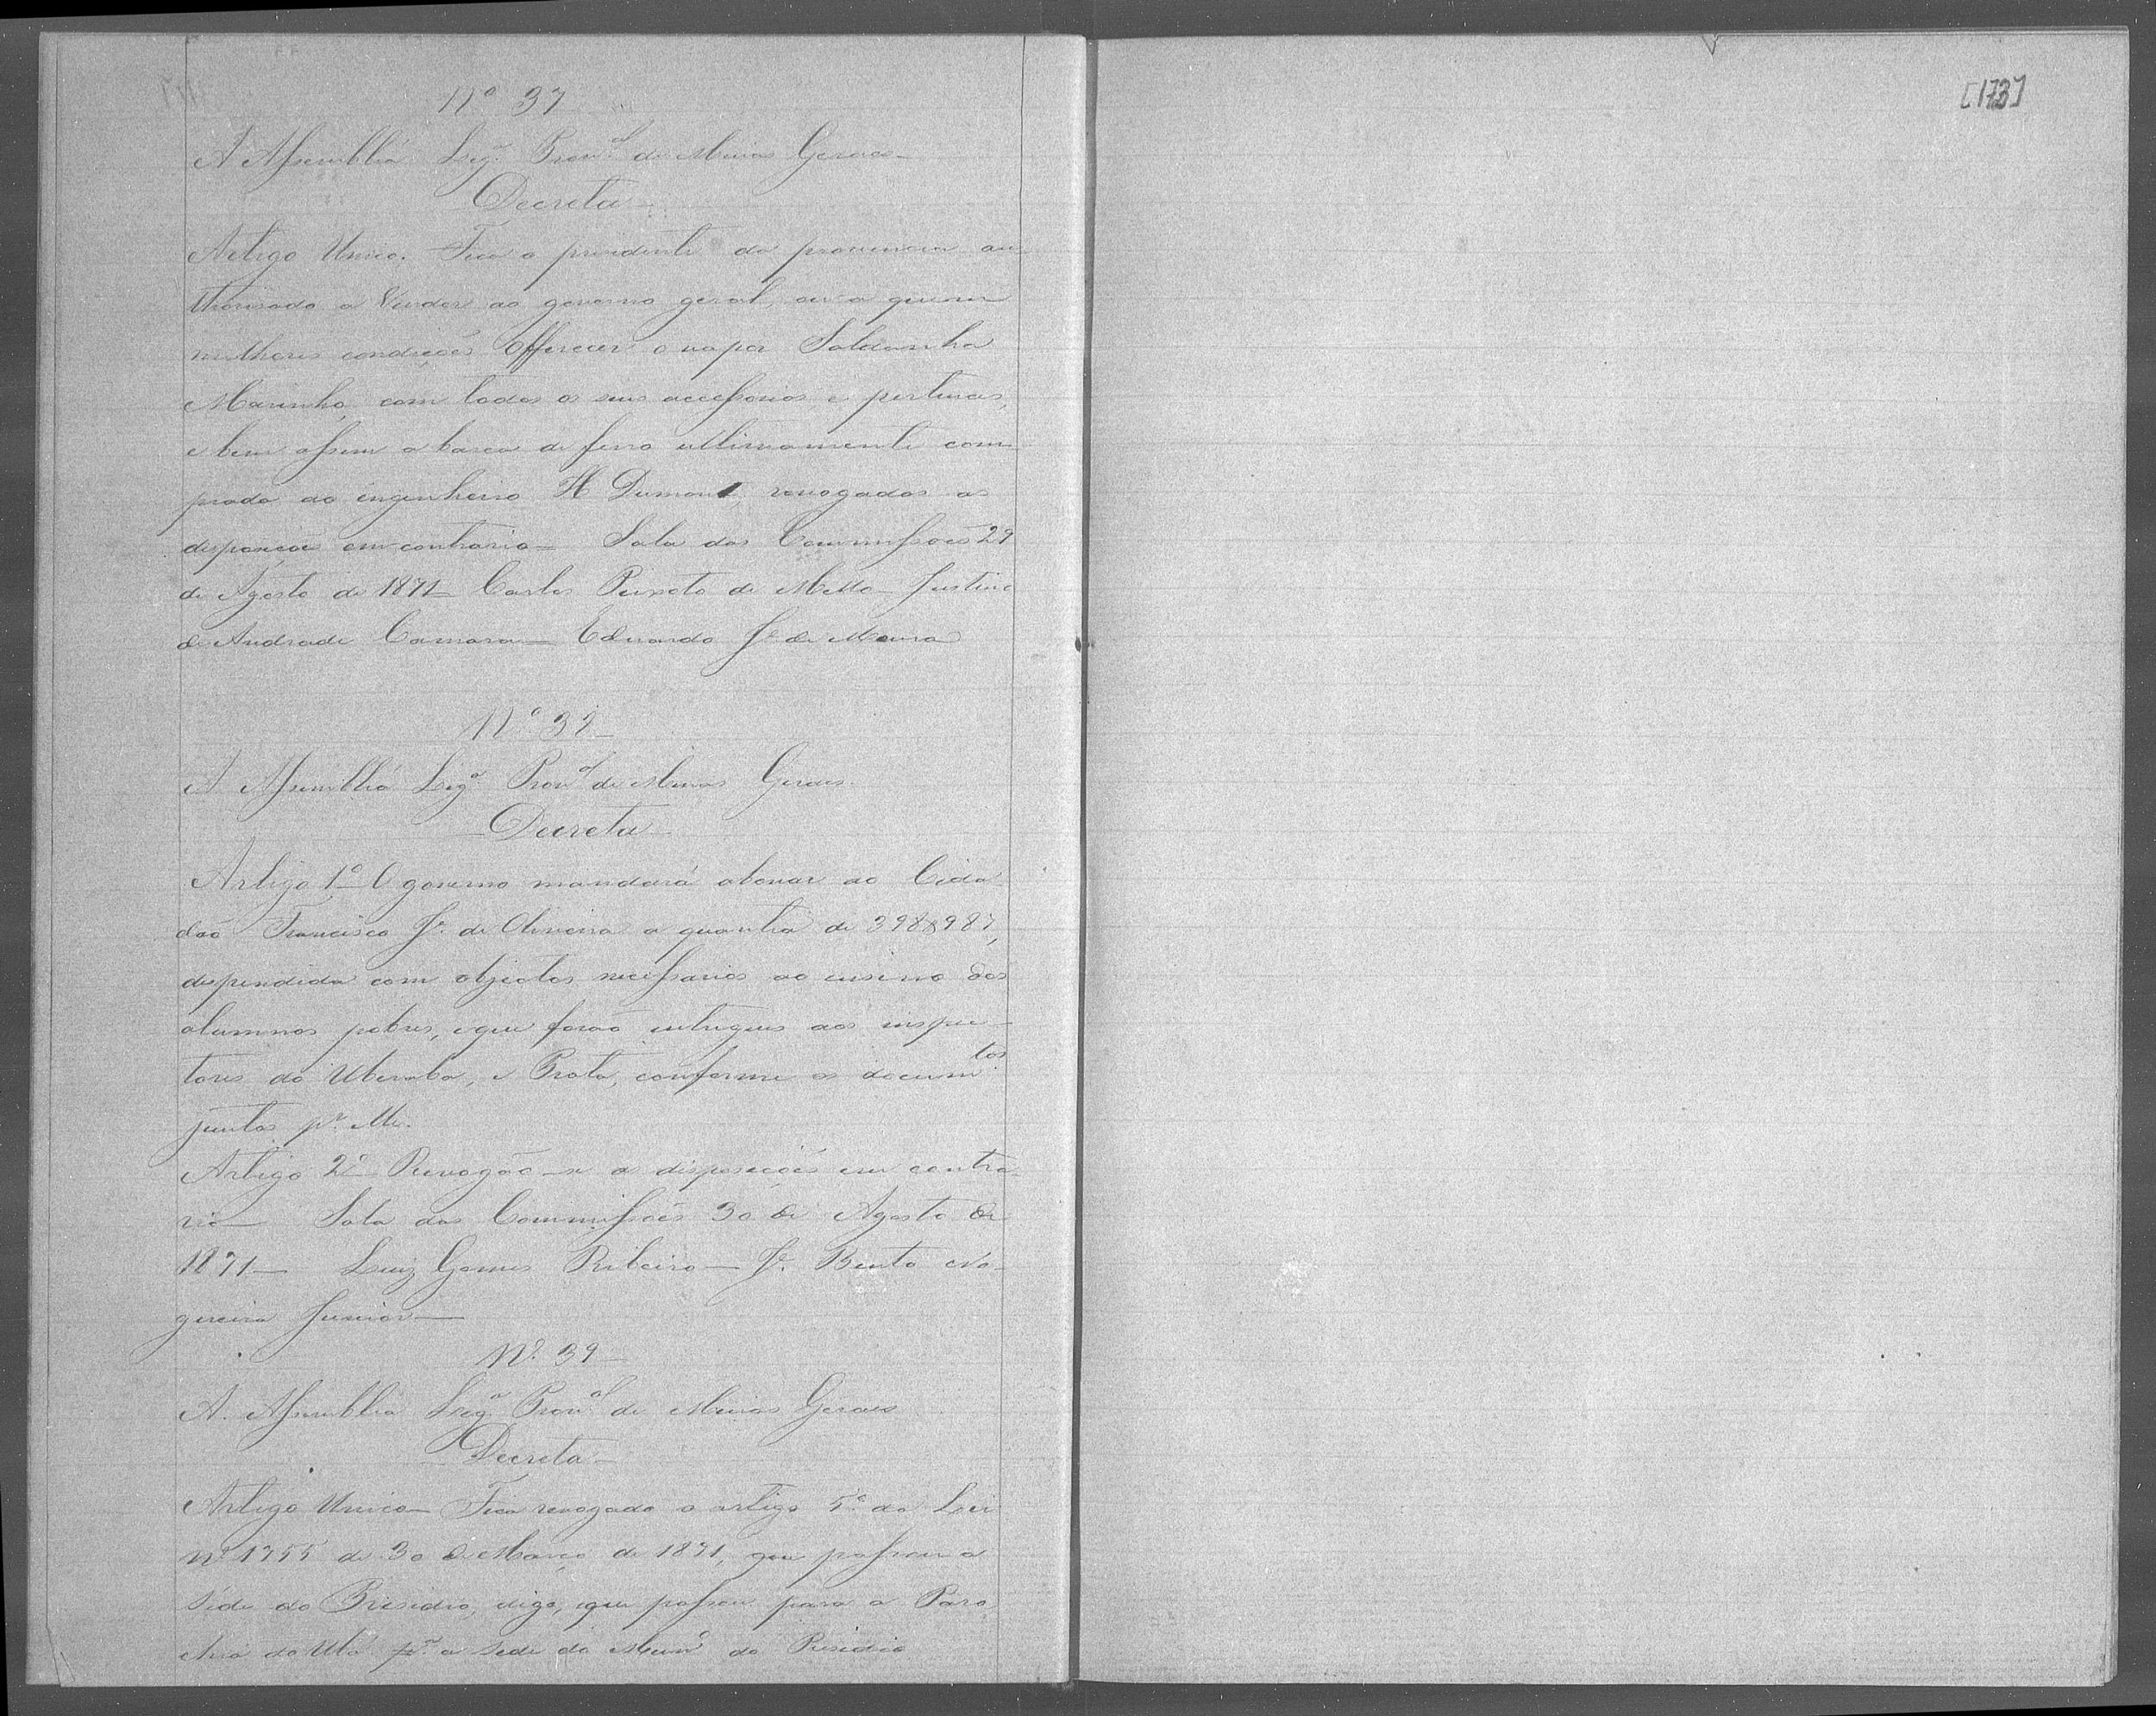 Nº 37
A Assembléa Leg.ª Prov.al de Minas Geraes
Decreta
Artigo Unico. Fica o presidente da provincia au
thorisado a vender ao governo geral, ou a quem
milhores condições offerecer o vapor Saldanha
Marinho, com todos os seus accessorios e pertenças,
e bem assim a barca de ferro ultimamente com
prada ao engenheiro H Dumont, revogadas as
disposições em contrario — Sala das Commissões 29
de Agosto de 1871 — Carlos Peixoto de Mello — Justino
de Andrade Camara — Eduardo Je de Moura
Nº 38
A Assembléa Leg.ª Prov.al de Minas Geraes.
Decreta
Artigo 1º O governo mandará abonar ao Cida
dão Francisco Je. de Oliveira a quantia de 398$987,
despendida com objectos necessarios ao ensino dos
alumnos pobres, e que forão entregues aos inspec-
tores do Uberaba, e Prata, conforme os documtos
juntos pr. Me.
Artigo 2º Revogão-se as disposições em contra-
rio — Sala das Commissões 30 de Agosto de
1871 — Luiz Gomes Ribeiro — Je. Bento No-
gueira Junior —
Nº. 39
A. Assembléa Leg.ª Prov.al de Minas Geraes
Decreta
Artigo Unico — Fica revogado o artigo 5º da Lei
nº 1755 de 30 de Março de 1871, que passou a
séde do Presidio, digo, que passou para a Paro
chia do Ubá pª a sede do Munº do Presidio
[173]